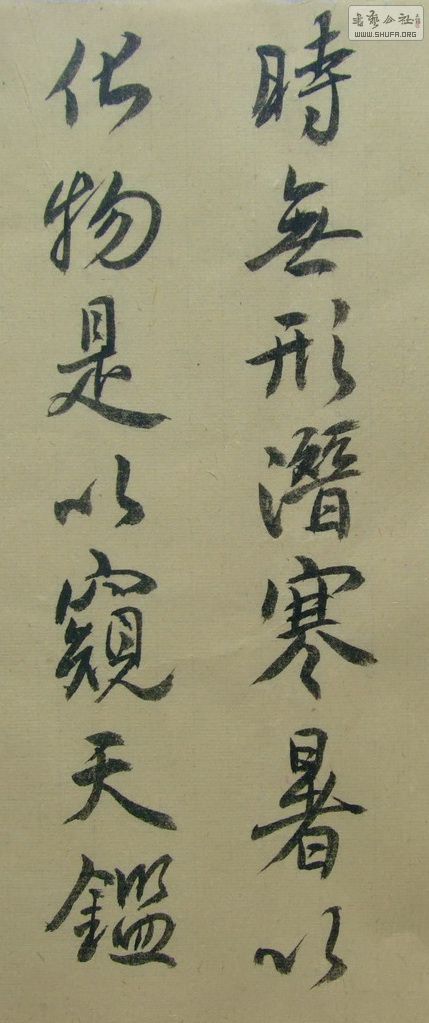 時無形潛寒暑以
化物是以窺天鑑
書藝公社
WWW.SHUFA.ORG